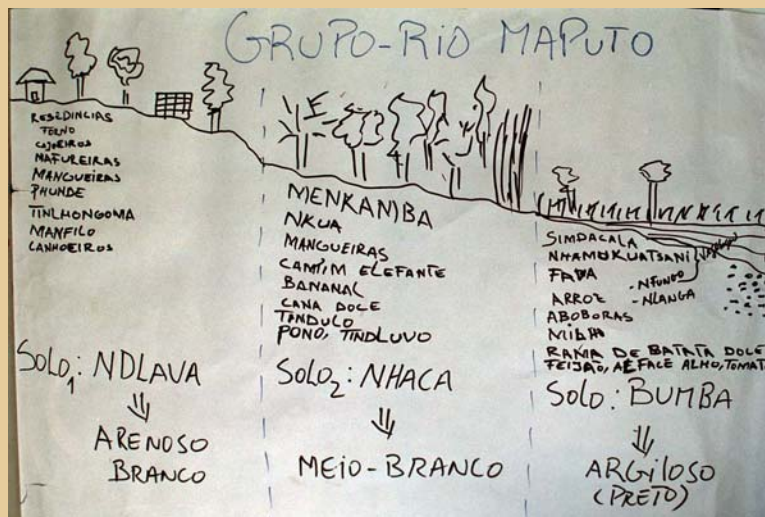 GRUPO-RIO MAPUTO
RESEDINCIAS
CAJOEIROS
MAFUREIRAS
MANGUEIRAS
PHUNDE
TINLHONGOMA
MANFILO
CANHOEIROS
SOLO1: NDLAVA
ARENOSO
BRANCO
MENKANIBA
NKUA
MANGUEIRAS
CAMIM ELEFANTE
BANANAL
CANA DOCE
TINDULO
PONO, TINDLUVO
SOLO2: NHACA
MEIO-BRANCO
SIMDACALA
NHAMUKUATSANI
ARROZ
- NFUNDO
- NLANGA
ABOBORAS
MILHO
RAMA DE BATATA DOCE
FEIJÃO, ALFACE ALHO, TOMAT
SOLO: BUMBA
ARGILOSO
(PRETO)